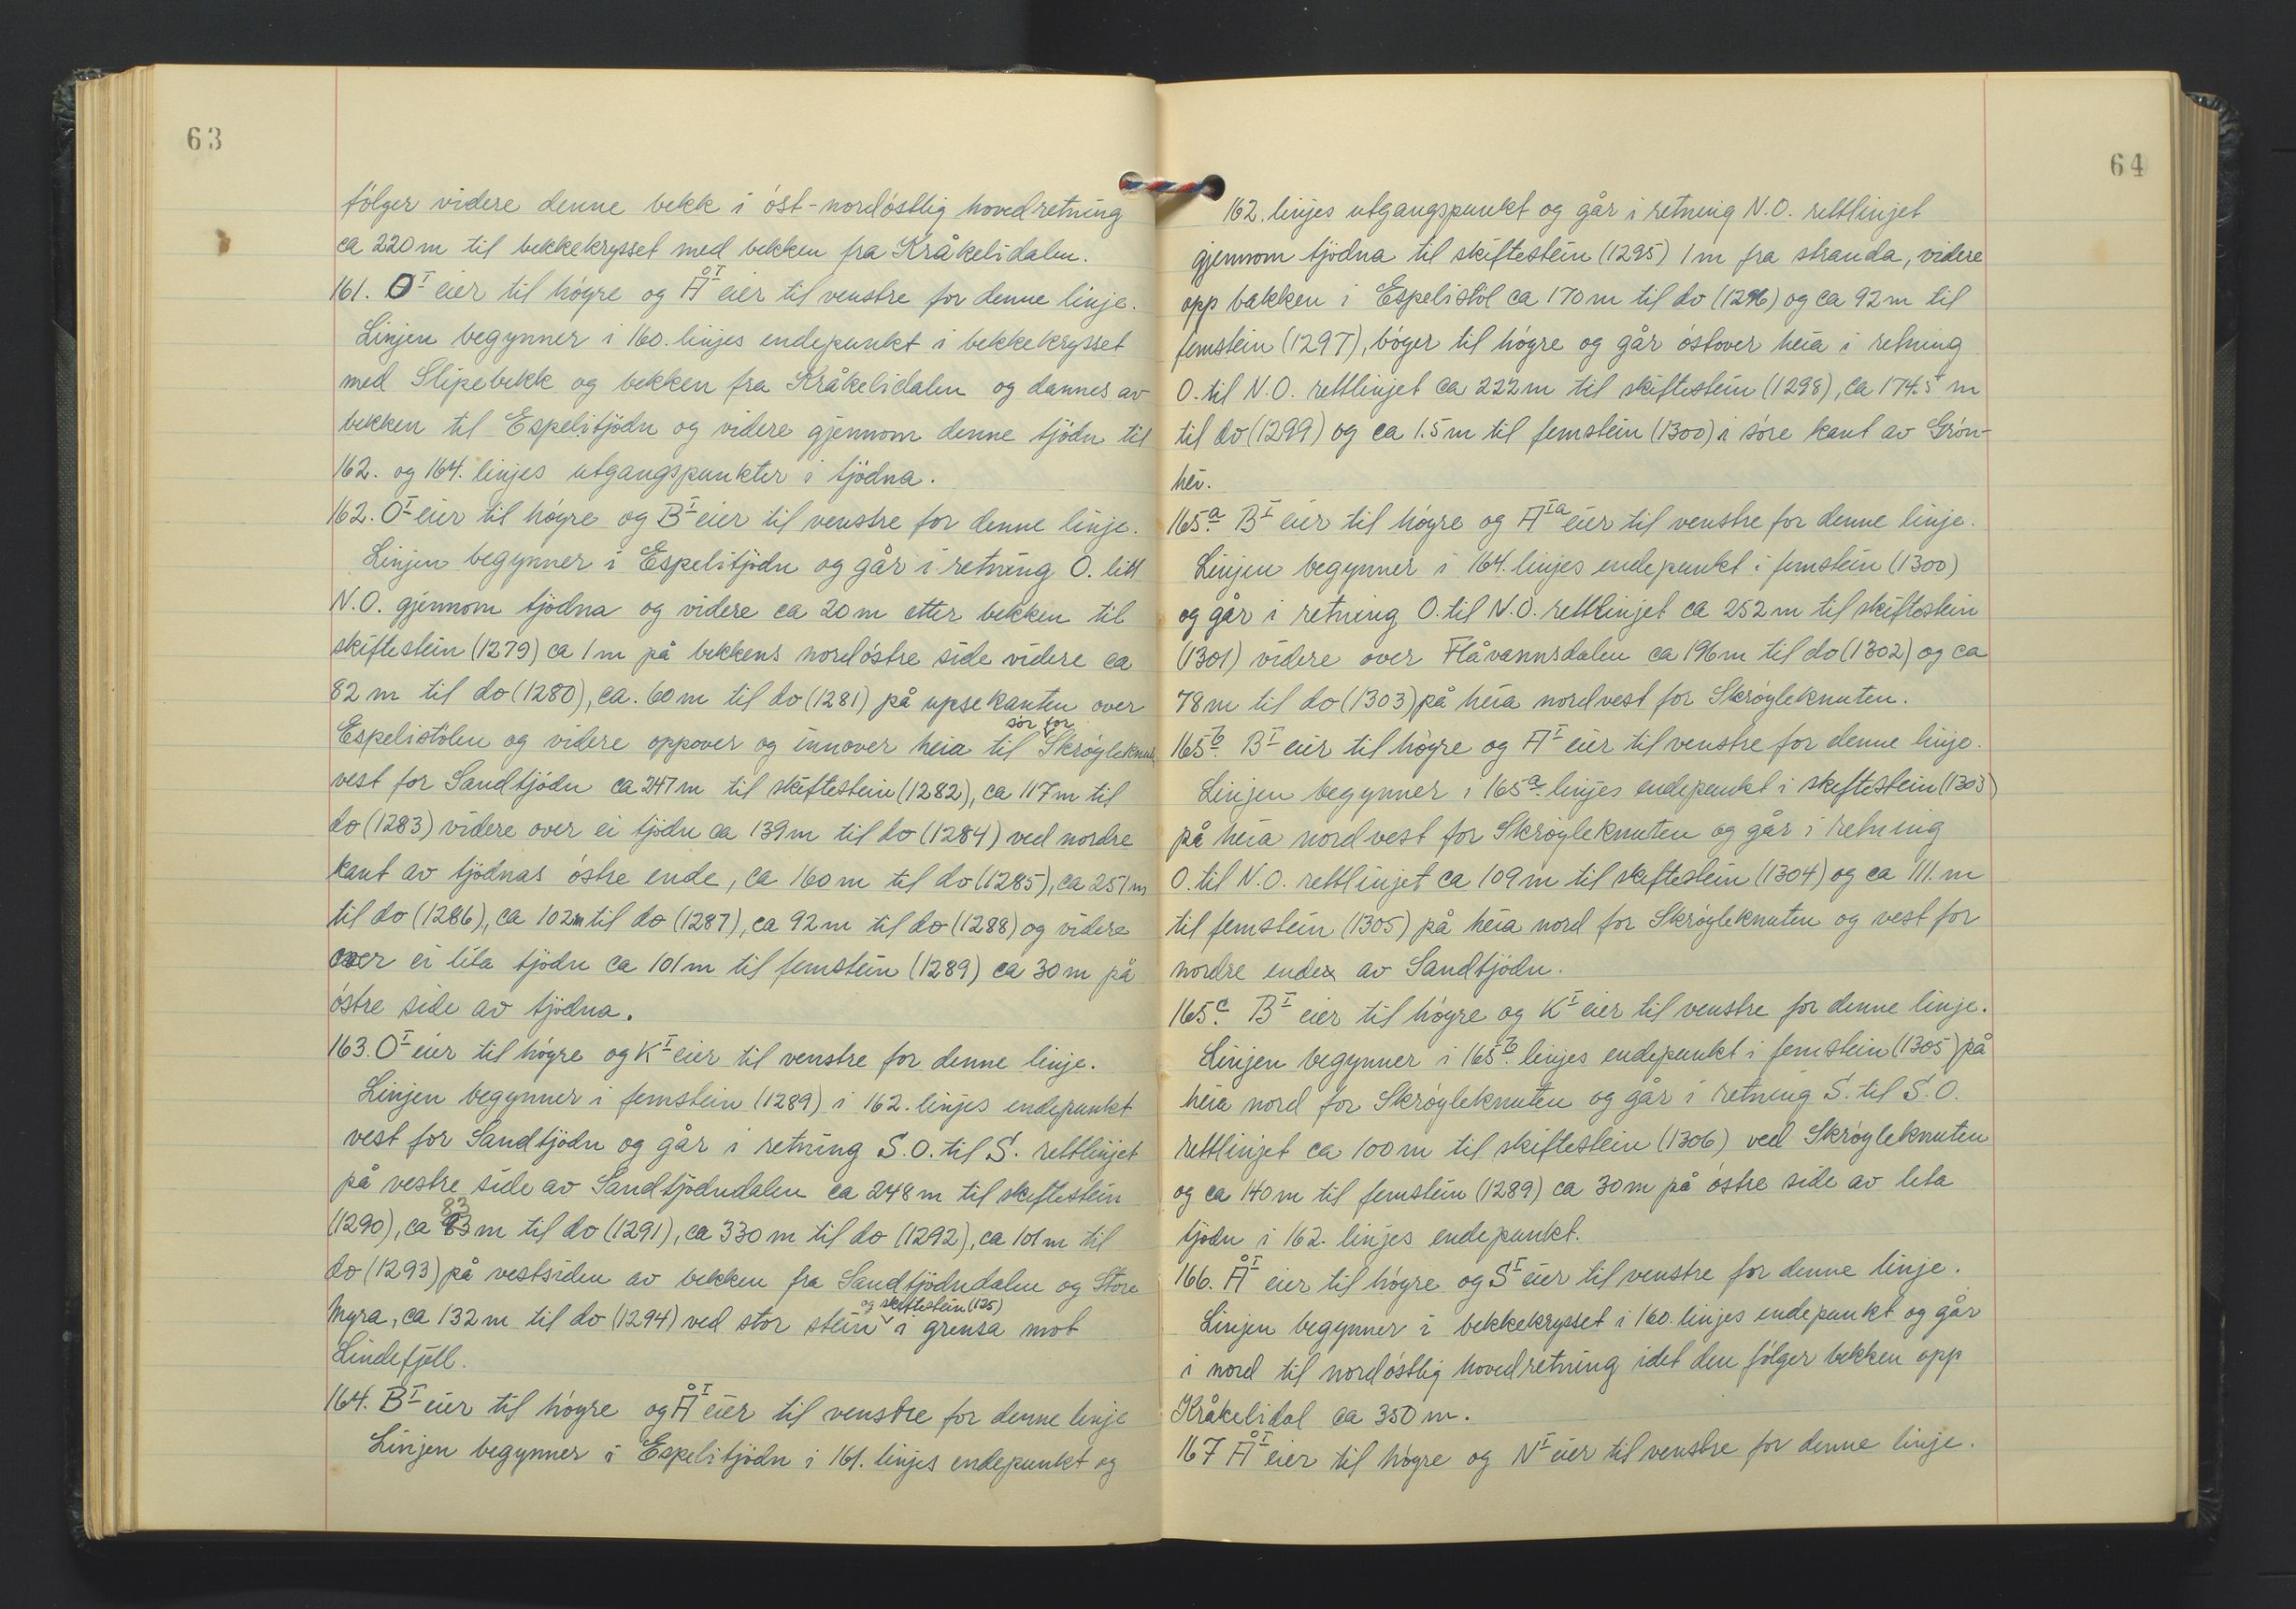 63
følger videre denne bekk i øst-nordøstlig hovedretning
ca 220 m til bekkekrysset med bekken fra Kråkelidalen.
161. O I eier til høgre og Å I eier til venstre for denne linje.
Linjen begynner i 160. linjes endepunkt i bekkekrysset
med Slipebekk og bekken fra Kråkelidalen og dannes av
bekken til Espelitjödn og videre gjennom denne tjödn til
162. og 164. linjes utgangspunkter i tjödna.
162. O I eier til høgre og B I eier til venstre for denne linje.
Linjen begynner i Espelitjödn og går i retning O. litt
N.O. gjennom tjödna og videre ca 20 m etter bekken til
skiftestein (1279) ca 1 m på bekkens nordøstre side videre ca
82 m til do (1280), ca. 60 m til do (1281) på upsekanten over
Espelistölen og videre oppover og innover heia til sør for Skrøyleknut
vest for Sandtjödn ca 247 m til skiftestein (1282), ca 117 m til
do (1283) videre over ei tjödn ca 139 m til do (1284) ved nordre
kant av tjödnas østre ende, ca 160 m til do (1285), ca 251 m
til do (1286), ca 102 m til do (1287), ca 92 m til do (1288) og videre
over ei lita tjödn ca 101 m til femstein (1289) ca 30 m på
østre side av tjödna.
163. O I eier til høgre og K I eier til venstre for denne linje.
Linjen begynner i femstein (1289) i 162. linjes endepunkt
vest for Sandtjödn og går i retning S.O. til S. rettlinjet
på vestre side av Sandtjödndalen ca 248 m til skiftestein
(1290), ca 83 m til do (1291), ca 330 m til do (1292), ca 101 m til
do (1293) på vestsiden av bekken fra Sandtjödndalen og Store
Myra, ca 132 m til do (1294) ved stor stein og skiftestein (125) i grensa mot
Lindefjell.
164. B I eier til høgre og Å I eier til venstre for denne linje
Linjen begynner i Espelitjödn i 161. linjes endepunkt og
64
162. linjes utgangspunkt og går i retning N.O. rettlinjet
gjennom tjödna til skiftestein (1295) 1 m fra stranda, videre
opp bakken i Espelistöl ca 170 m til do (1296) og ca 92 m til
femstein (1297), bøger til høgre og går østover heia i retning
O. til N.O. rettlinjet ca 222 m til skiftestein (1298), ca 174.5 m
til do (1299) og ca 1.5 m til femstein (1300) i søre kant av Grøn-
hei.
165 a. B I eier til høgre og A I a eier til venstre for denne linje.
Linjen begynner i 164. linjes endepunkt i femstein (1300)
og går i retning O. til N.O. rettlinjet ca 252 m til skiftestein
(1301) videre over Flåvannsdalen ca 196 m til do (1302) og ca
78 m til do (1303) på heia nordvest for Skrøyleknuten.
165 b. B I eier til høgre og A I eier til venstre for denne linje.
Linjen begynner i 165 a. linjes endepunkt i skiftestein (1303)
på heia nordvest for Skrøyleknuten og går i retning
O. til N.O. rettlinjet ca 109 m til skiftestein (1304) og ca 111. m
til femstein (1305) på heia nord for Skrøyleknuten og vest for
nordre ende av Sandtjödn.
165 c. B I eier til høgre og K I eier til venstre for denne linje.
Linjen begynner i 165 b. linjes endepunkt i femstein (1305) på
heia nord for Skrøyleknuten og går i retning S. til S.O.
rettlinjet ca 100 m til skiftestein (1306) ved Skrøyleknuten
og ca 140 m til femstein (1289) ca 30 m på østre side av lita
tjödn i 162. linjes endepunkt.
166. Å I eier til høgre og S I eier til venstre for denne linje.
Linjen begynner i bekkekrysset i 160. linjes endepunkt og går
i nord til nordøstlig hovedretning idet den følger bekken opp
Kråkelidal ca 350 m.
167 Å I eier til høgre og N I eier til venstre for denne linje.